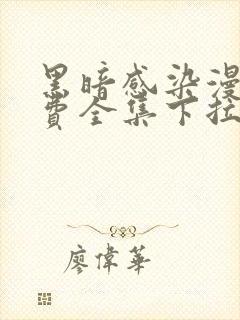 黑暗感染漫
费全集下拉
廖偉華